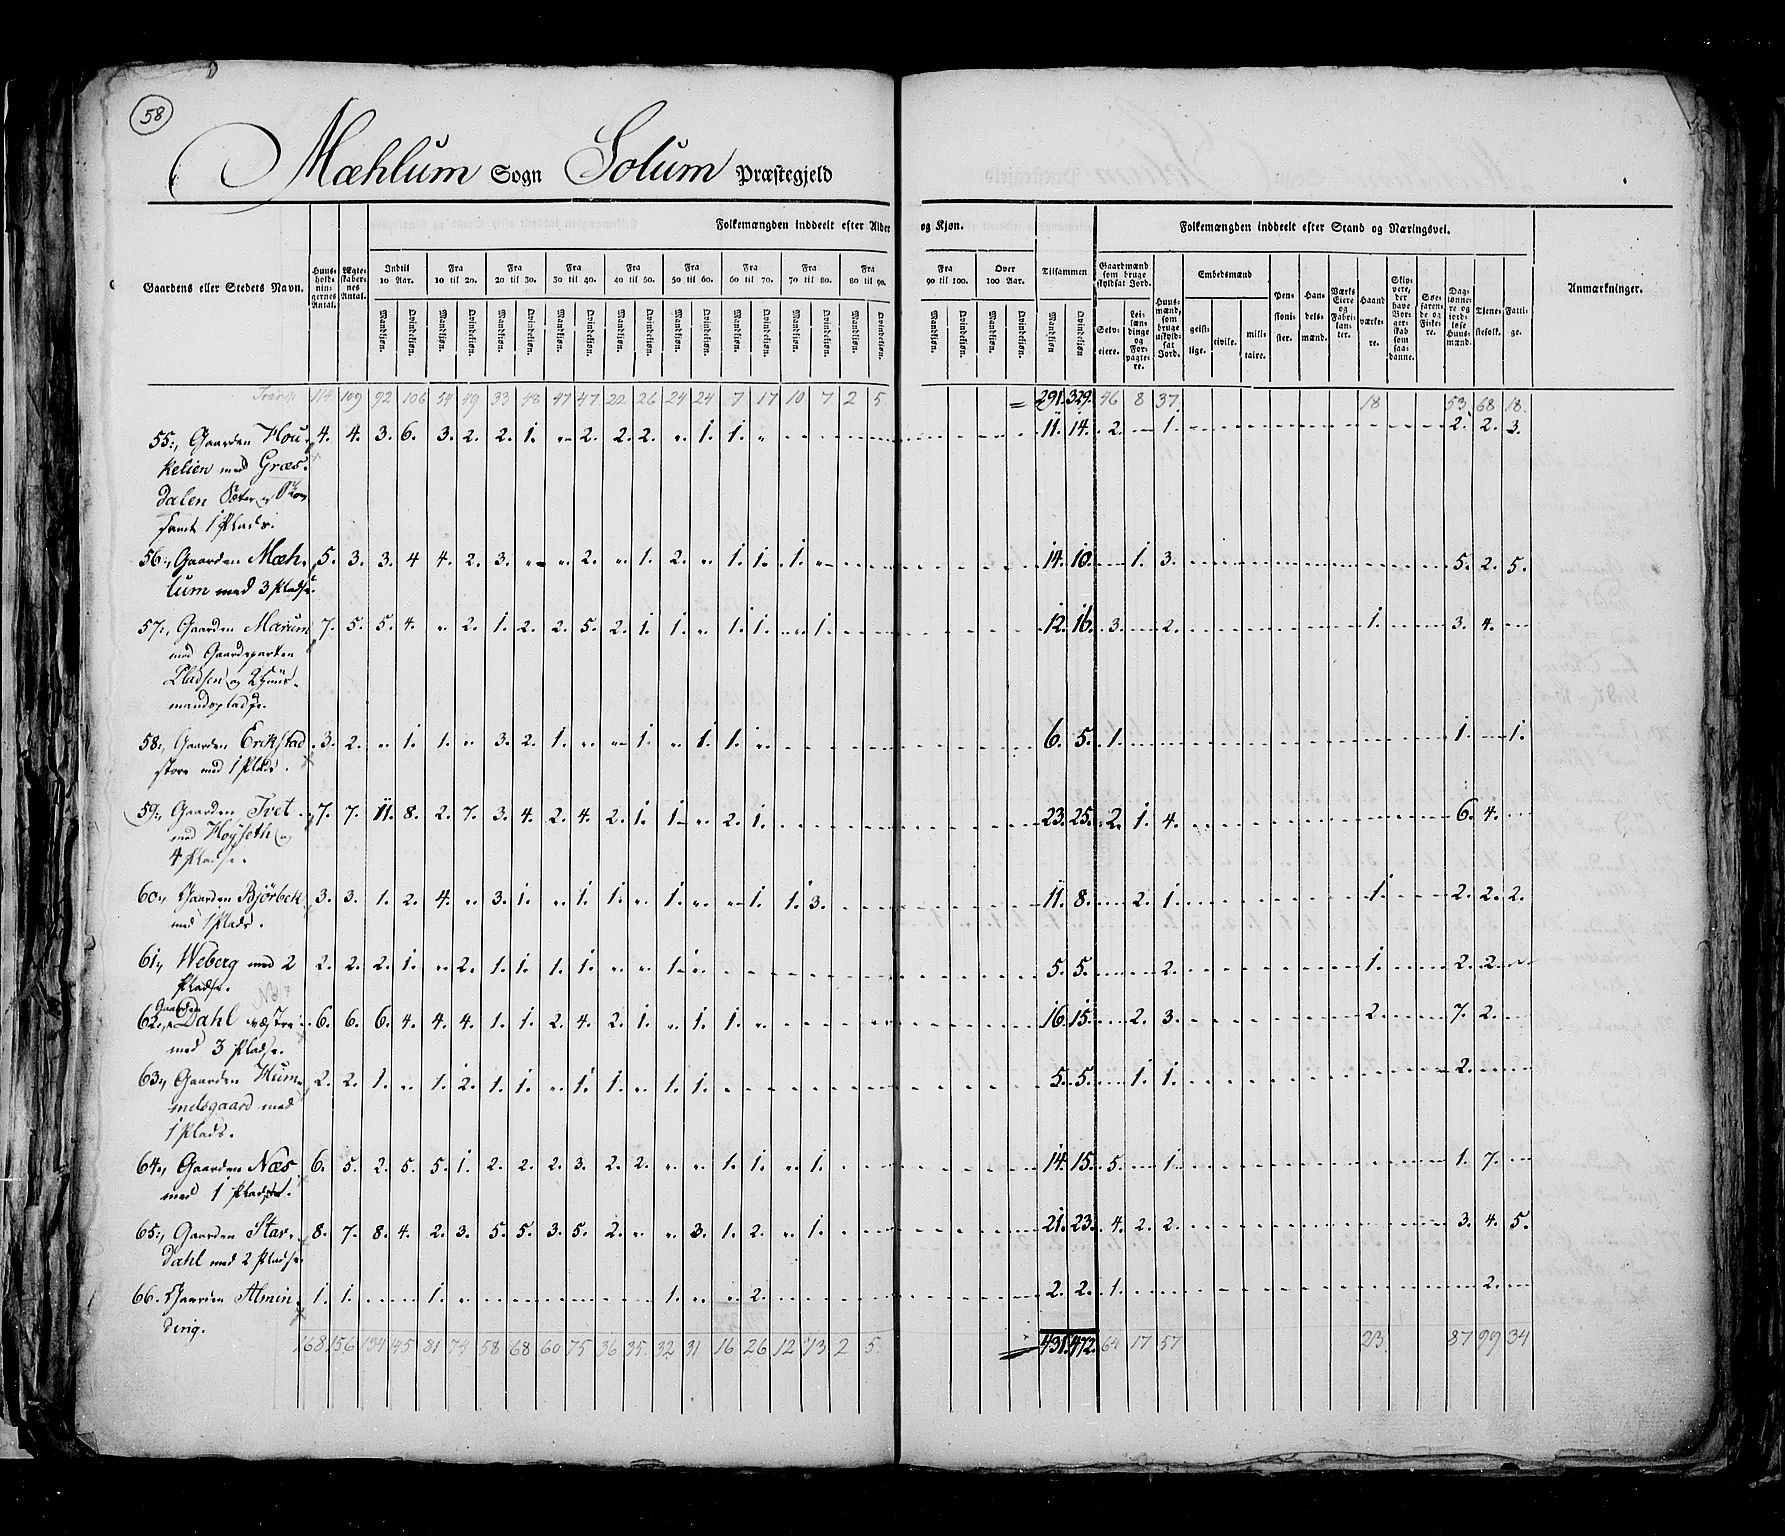 58
Mæhlum Sogn Solum Præstegjeld
Folkemængden inddeelt efter Alder og Kjøn.
Folkemængden inddeelt efter Stand og Næringsvei.
Gaardens eller Stedets Navn.
Huus-holdnin-gernes Antal.
Ægte-skaber-nes Antal.
Indtil 10 Aar.
Fra 10 til 20.
Fra 20 til 30.
Fra 30 til 40.
Fra 40 til 50.
Fra 50 til 60.
Fra 60 til 70.
Fra 70 til 80.
Fra 80 til 90.
Fra 90 til 100.
Over 100 Aar.
Tilsammen
Mandkiøn. Qvindekiøn.
Gaardmænd som bruge skyldsat Jord.
Selv-eiere.
Lei-lændinge og For-pagte-re.
Huus-mænd, som bruge uskyld-sat Jord.
Embedsmænd
geist-lige.
civile.
mili-taire.
Pen-sioni-ster.
Han-dels-mænd.
Værks Eiere og Fabri-kan-ter.
Haand værke-re.
Skip-pere, der have Bor-ger-skab som saa-danne.
Søe-farende og Fiske-re.
Dag-lønne-re og jord-løse Huus-mænd.
Tjene-stefolk.
Fatti-ge.
Anmærkninger.
Transp 114 109 92 106 54 49 33 48 47 47 22 26 24 24 7 17 10 7 2 5 = 291. 329. 46 8 37. 18 53 68 18.
55., Gaarden Hou- 4. 4. 3. 6. 3. 2. 2. 1. " 2. 2. 2. " 1. 1. " 11. 14. 2. 1. 2. 2. 3.
kelien med Græs-
dalen Sæter og
samt 1 Plads.
56., Gaarden Mæh- 5. 3. 3. 4 4. 2. 3. " " 2. " 1. 2. " 1. 1. 1. " 14. 10. 1. 3. 5. 2. 5.
lum med 3 Pladse.
57., Gaarden Mærum 7. 5. 5. 4. " 2. 1. 2. 2. 5. 2. 1. 1. " 1. 1. " 1. 12. 16. 3. 2. 1. 3. 4.
med Gaardeparten
Pladsen og 2 Huus-
mandspladse.
58., Gaarden Erikstad 3. 2. " 1. 1. " 3. 2. 1. " " 1. " 1. 1. " 6. 5. 1. 1. 1.
store med 1 Plads.
59., Gaarden Tvet 7. 7. 11. 8. 2. 7. 3. 4. 2. 4. 2. 1. 1. " 2. 1. 23. 25. 2. 1. 4. 6. 4.
med Høyseth og
4 Pladse.
60., Gaarden Bjørbek 3. 3. 1. 2. 4. " 3. 1. " 1. 1. " 1. " " 1. 1. 3. 11. 8. 2. 1. 1. 2. 2. 2.
med 1 Plads.
61., Weberg med 2 2. 2. 2. 1. " 2. 1. 1. 1. 1. " " 1. " 5. 5. 2. 1. 2. 2.
Pladse.
Gaarden
62., Dahl vestre 6. 6. 6. 4. 4. 4. 1. 1. 2. 4. 2. 1. " 1. 1. " 16. 15. 2. 3. 2. 7. 2.
med 3 Pladse.
63., Gaarden Hum- 2. 2. 1. " 1. 2. 1. 1. " 1. 1. " 1. 1. 5. 5. 1. 1. 2.
melsgaard med
1 Plads.
64., Gaarden Næs 6. 5. 2. 5. 5. 1. 2. 2. 2. 3. 2. 2. " " 1. 1. " 1. 14. 15. 5. 1. 1. 7.
med 1 Plads.
65., Gaarden Star- 8. 7. 8. 4. 2. 3. 5. 5. 3. 5. 2. " " 3. 1. 2. " 1. 21. 23. 4. 2. 2. 3. 4. 5.
dahl med 2 Pladse.
66. Gaarden Almin- 1. 1. 1. " 1. " " 2. 2. 2. 1. 2.
ding.
168 156 134 145 81 73 58 68 60 75 36 35. 32 31 16 26 12 13 2 5. 431. 472. 64 17 57 23. 87 99 34